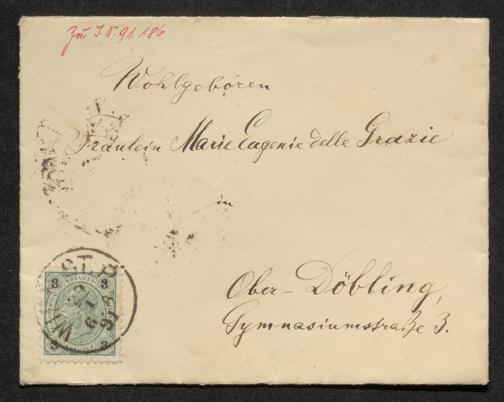 Zu I.N. 91.186
Wohlgeboren
Fräulein Marie Eugenie delle Grazie
in
Ober-Döbling,
Gymnasiumstraße 3.
3 KREUZER 3
3 3
WI ST. P